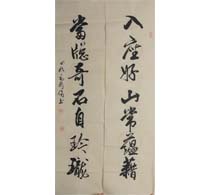 入座好山常蕴藉
當牕奇石自玲瓏